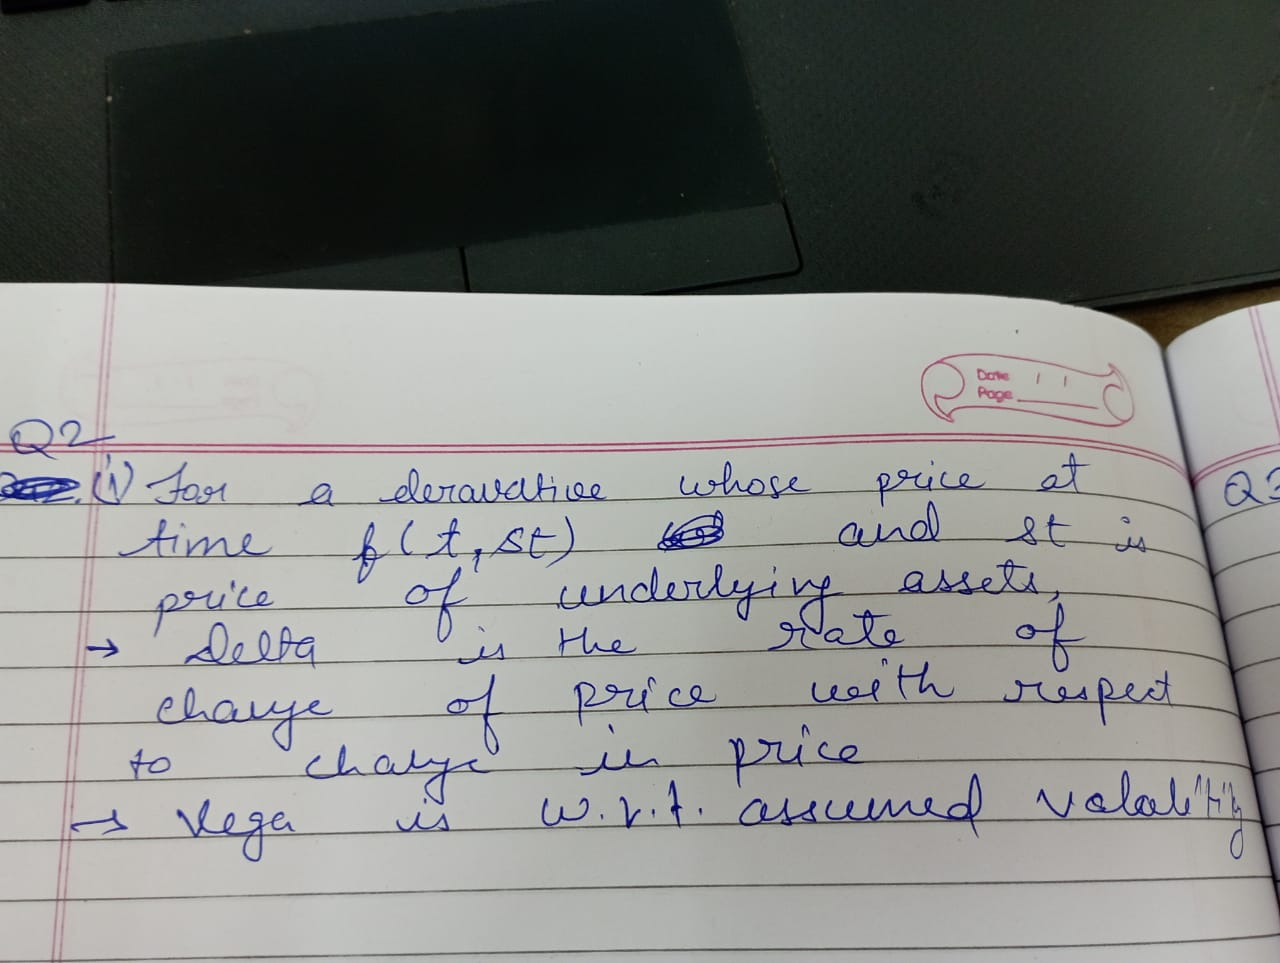 Date
Page
Q2
(i) For a deravative whose price at
time f(t, St) and St is
price of underlying assets,
→ Delta is the rate of
change of price with respect
to change in price
→ Vega is w.r.t. assumed
Q3